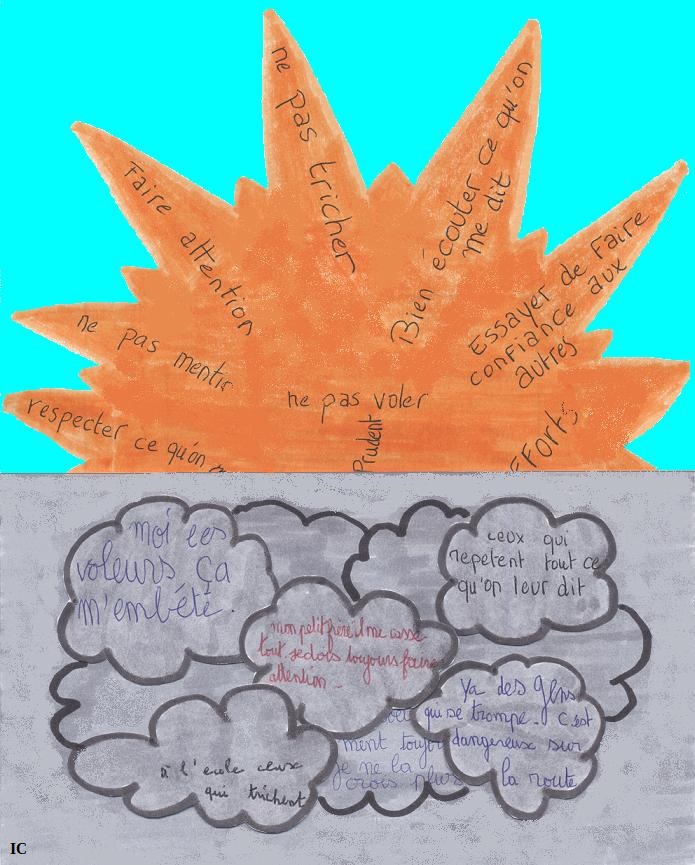 ne pas tricher
Bien écouter ce qu'on
me dit
Faire attention
Essayer de Faire
confiance aux
autres
ne pas mentir
ne pas voler
respecter ce qu'on
Prudent
moi les
voleurs ça
m'embête.
ceux qui
repetent tout ce
qu'on leur dit
mon petit frère il me casse
tout. je dois toujours faire
attention -
Ya des gens
qui se trompe. C'est
dangereux sur
la route
ment toujou
je ne la
crois plus
à l'école ceux
qui trichent
IC